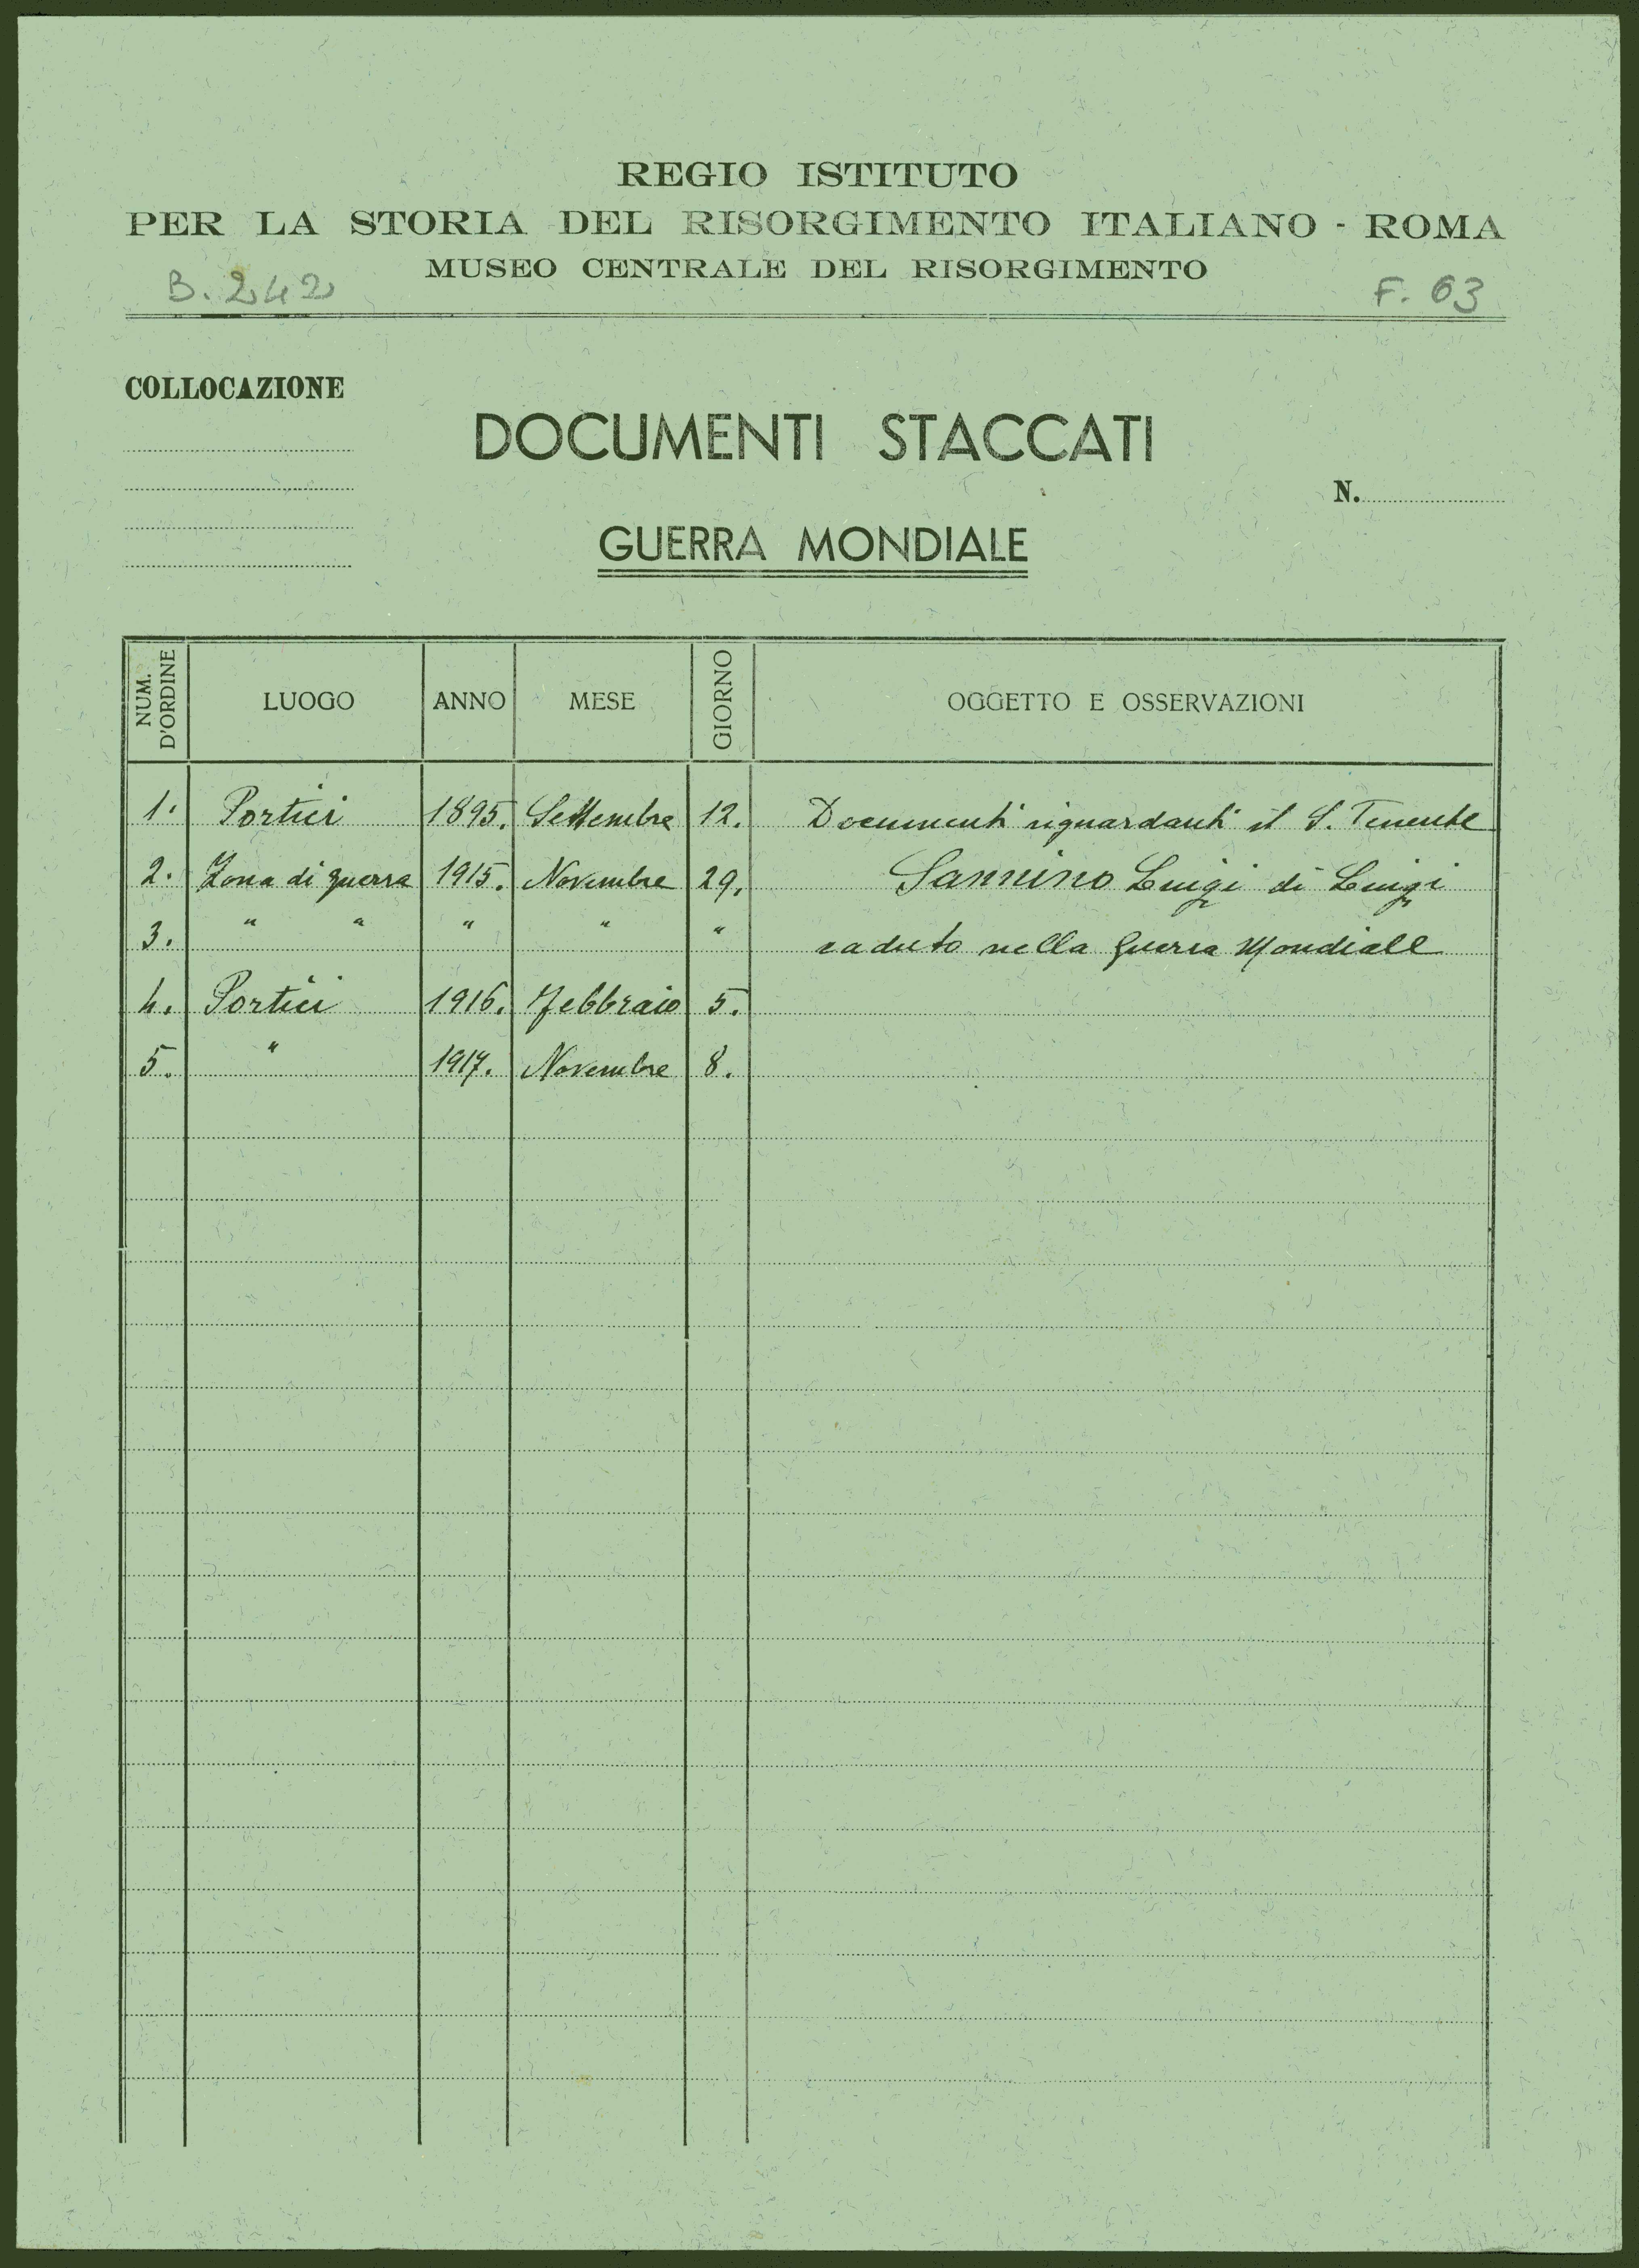 REGIO ISTITUTO
PER LA STORIA DEL RISORGIMENTO ITALIANO - ROMA
MUSEO CENTRALE DEL RISORGIMENTO
B. 242 F. 63
COLLOCAZIONE
DOCUMENTI STACCATI
N.
GUERRA MONDIALE
NUM. D'ORDINE LUOGO ANNO MESE GIORNO OGGETTO E OSSERVAZIONI
1. Portici 1895. Settembre 12. Documenti riguardanti il S. Tenente
2. Zona di guerra 1915. Novembre 29. Sannino Luigi di Luigi
3. " " " " " caduto nella Guerra Mondiale
4. Portici 1916. Febbraio 5.
5. " 1917. Novembre 8.